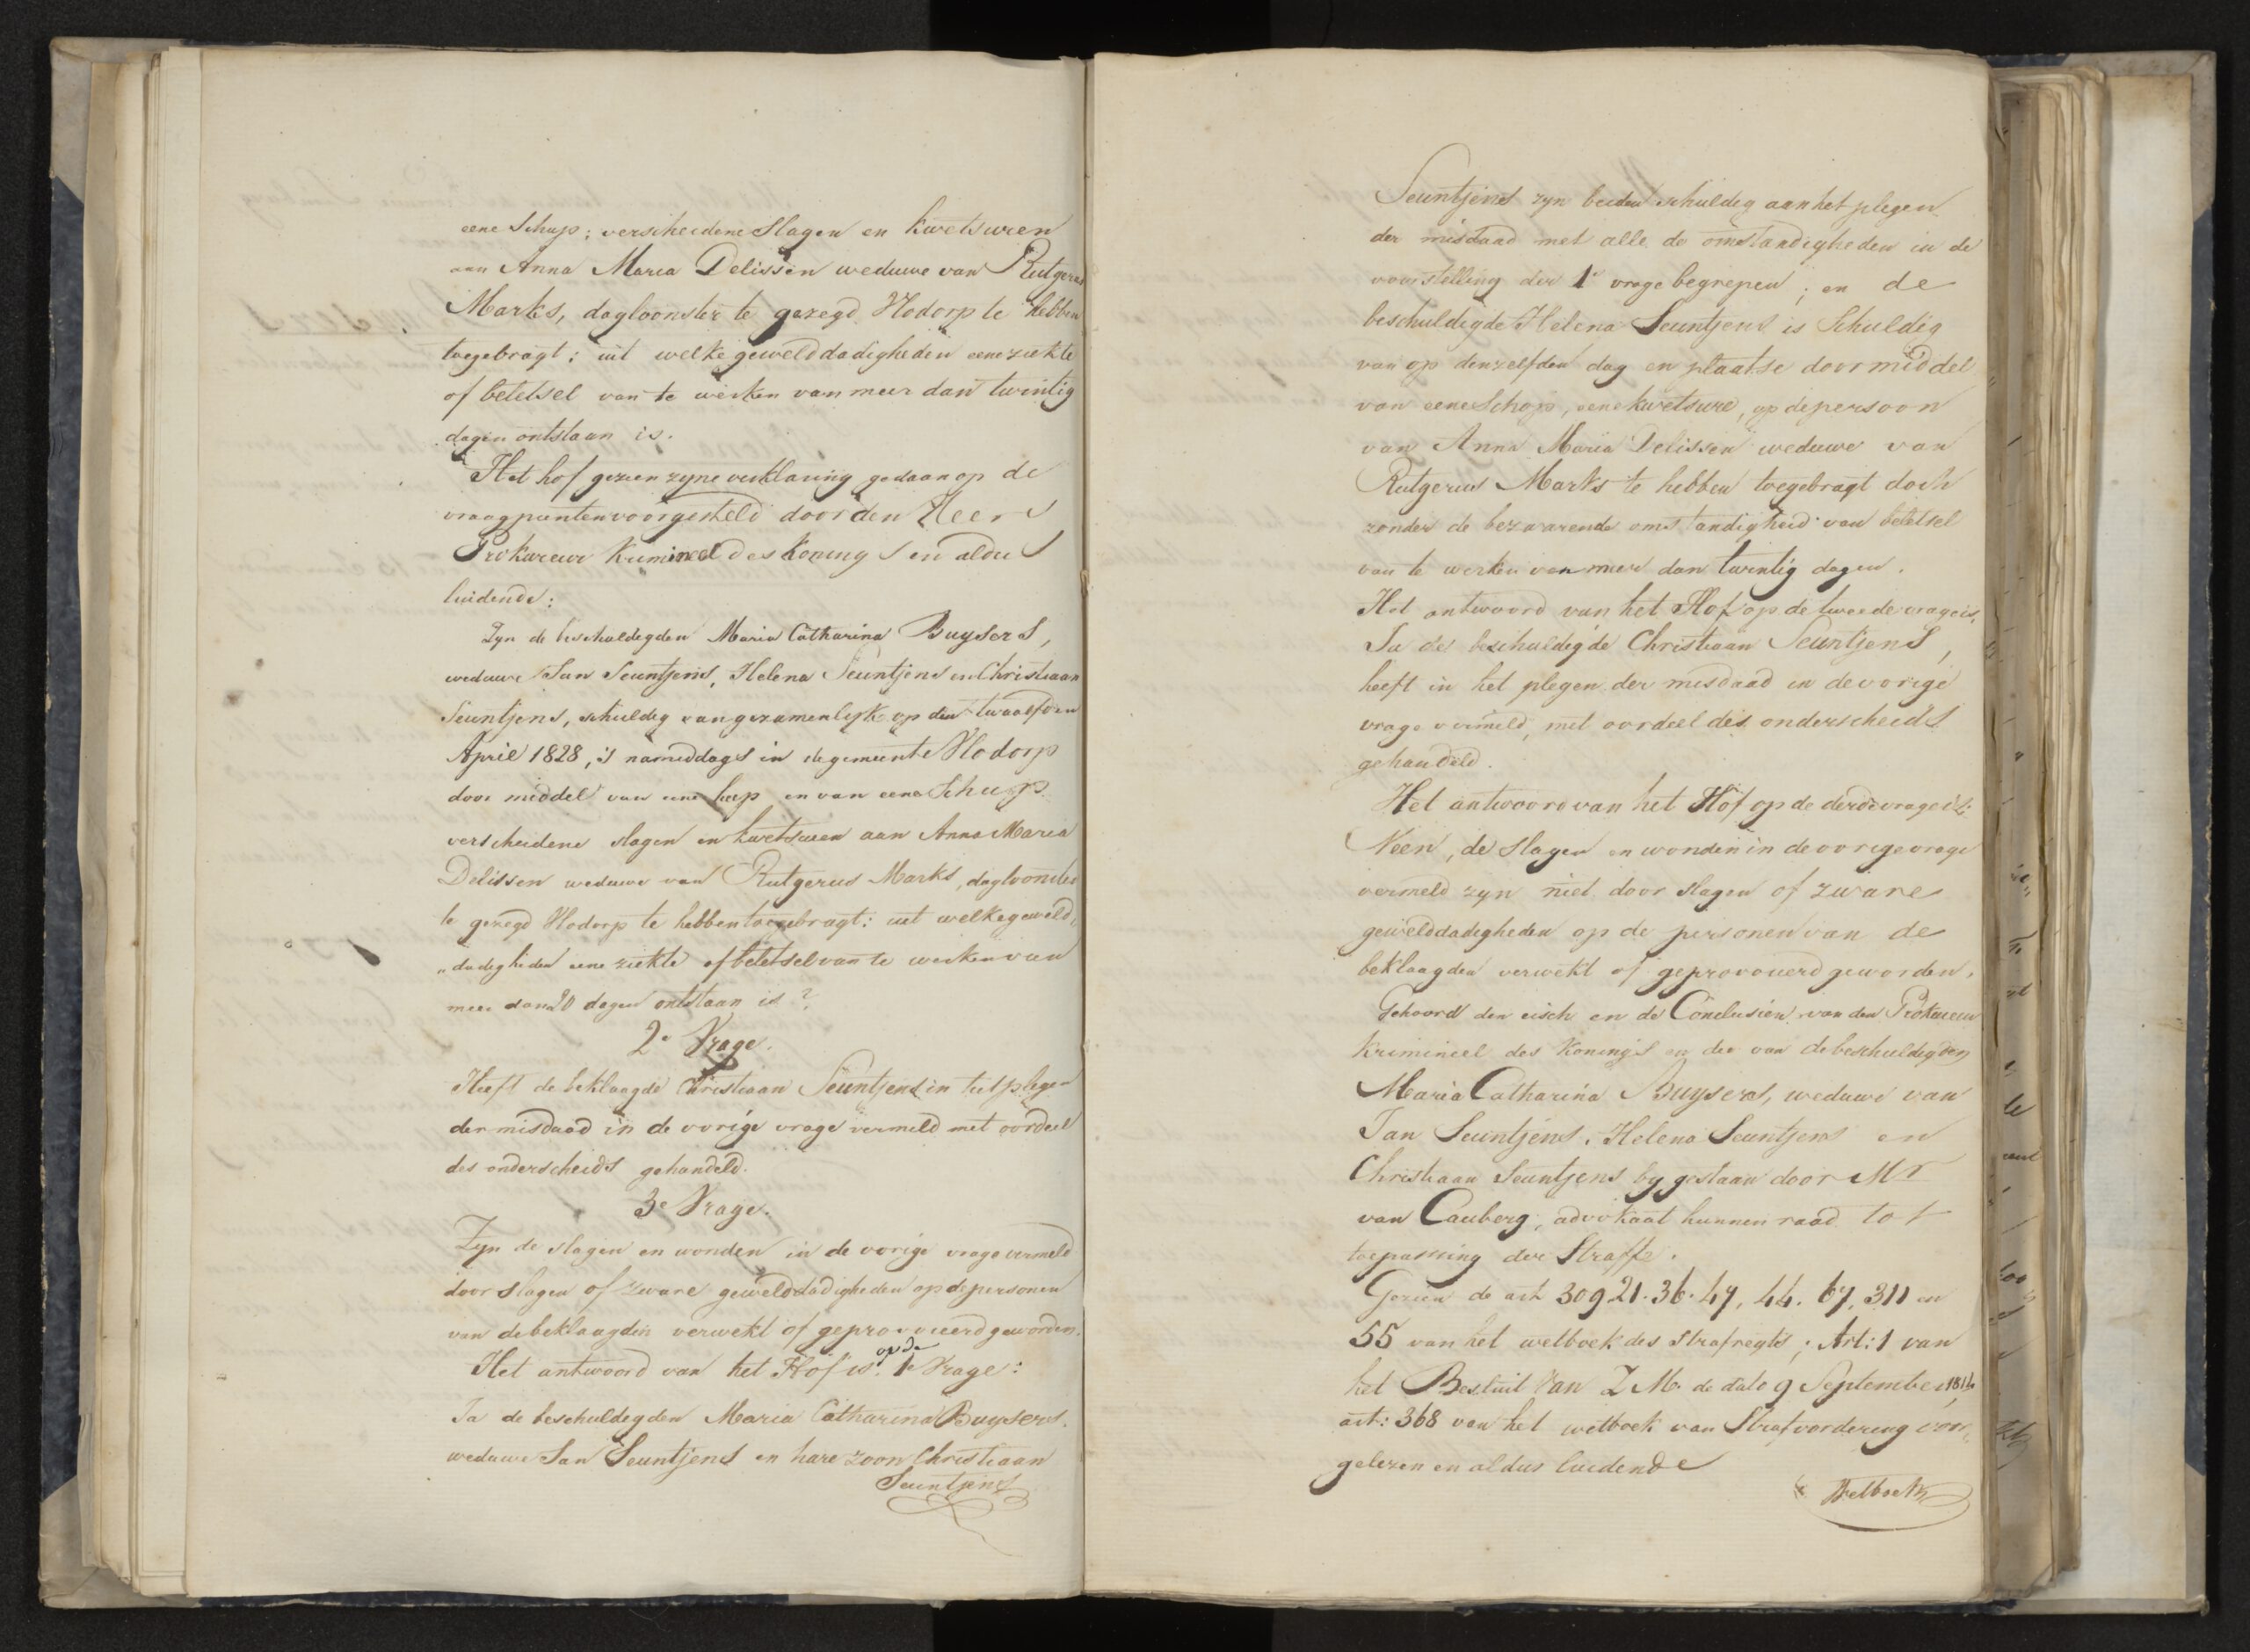 eene Schup; verscheidene Slagen en kwetsuren
aan Anna Maria Delissen weduwe van Rutgerus
Marks, dagloonster te gezegd Hodorp te hebben
toegebragt; uit welke gewelddadigheden eene ziekte
of beletsel van te werken van meer dan twintig
dagen ontstaan is.
Het hof gezien zyne verklaring gedaan op de
vraagpunten voorgesteld door den Heer
Prokureur Krimineel des Konings en aldus
luidende:
Zyn de beschuldigden Maria Catharina Buysers,
weduwe Jan Seuntjens, Helena Seuntjens en Christiaan
Seuntjens, schuldig van gezamenlyk op den twaalfden
April 1828, 's namiddags in de gemeente Hodorp
door middel van eene heep en van eene Schup
verscheidene slagen en kwetsuren aan Anna Maria
Delissen weduwe van Rutgerus Marks, dagloonster
te gezegd Hodorp te hebben toegebragt: uit welke geweld
„dadigheden eene ziekte of beletsel van te werken van
meer dan 20 dagen ontstaan is?
2e Vrage.
Heeft de beklaagde Christiaan Seuntjens in het plegen
der misdaad in de vorige vrage vermeld met oordeel
des onderscheids gehandeld.
3e Vrage.
Zyn de slagen en wonden in de vorige vrage vermeld
door slagen of zware gewelddadigheden op de personen
van de beklaagden verwekt of geprovoceerd geworden.
Het antwoord van het Hof is op de 1e Vrage:
Ja de beschuldigden Maria Catharina Buysers,
weduwe Jan Seuntjens en hare zoon Christiaan
Seuntjens
Seuntjens zyn beiden schuldig aan het plegen
der misdaad met alle de omstandigheden in de
voorstelling der 1e vrage begrepen; en de
beschuldigde Helena Seuntjens is Schuldig
van op denzelfden dag en plaatse door middel
van eene Schop, eene kwetsure, op de persoon
van Anna Maria Delissen weduwe van
Rutgerus Marks te hebben toegebragt doch
zonder de bezwarende omstandigheid van beletsel
van te werken van meer dan twintig dagen.
Het antwoord van het Hof op de tweede vrage is,
Ja de beschuldigde Christiaan Seuntjens,
heeft in het plegen der misdaad in de vorige
vrage vermeld, met oordeel des onderscheids
gehandeld.
Het antwoord van het Hof op de derde vrage is:
Neen, de slagen en wonden in de vorige vrage
vermeld zyn niet door slagen of zware
gewelddadigheden op de personen van de
beklaagden verwekt of geprovoceerd geworden.
Gehoord den eisch en de Conclusien van den Prokureur
Krimineel des Konings en die van de beschuldigden
Maria Catharina Buysers, weduwe van
Jan Seuntjens, Helena Seuntjens en
Christiaan Seuntjens bygestaan door Mr
van Cauberg, advokaat hunnen raad tot
toepassing der Straffe.
Gezien de art 309 21. 36. 47, 44. 67, 311 en
55 van het wetboek des Strafregts; Art: 1 van
het Besluit van Z M. de dato 9 September 1814
art: 368 van het wetboek van Strafvordering voor„
gelezen en aldus luidende
Wetboek